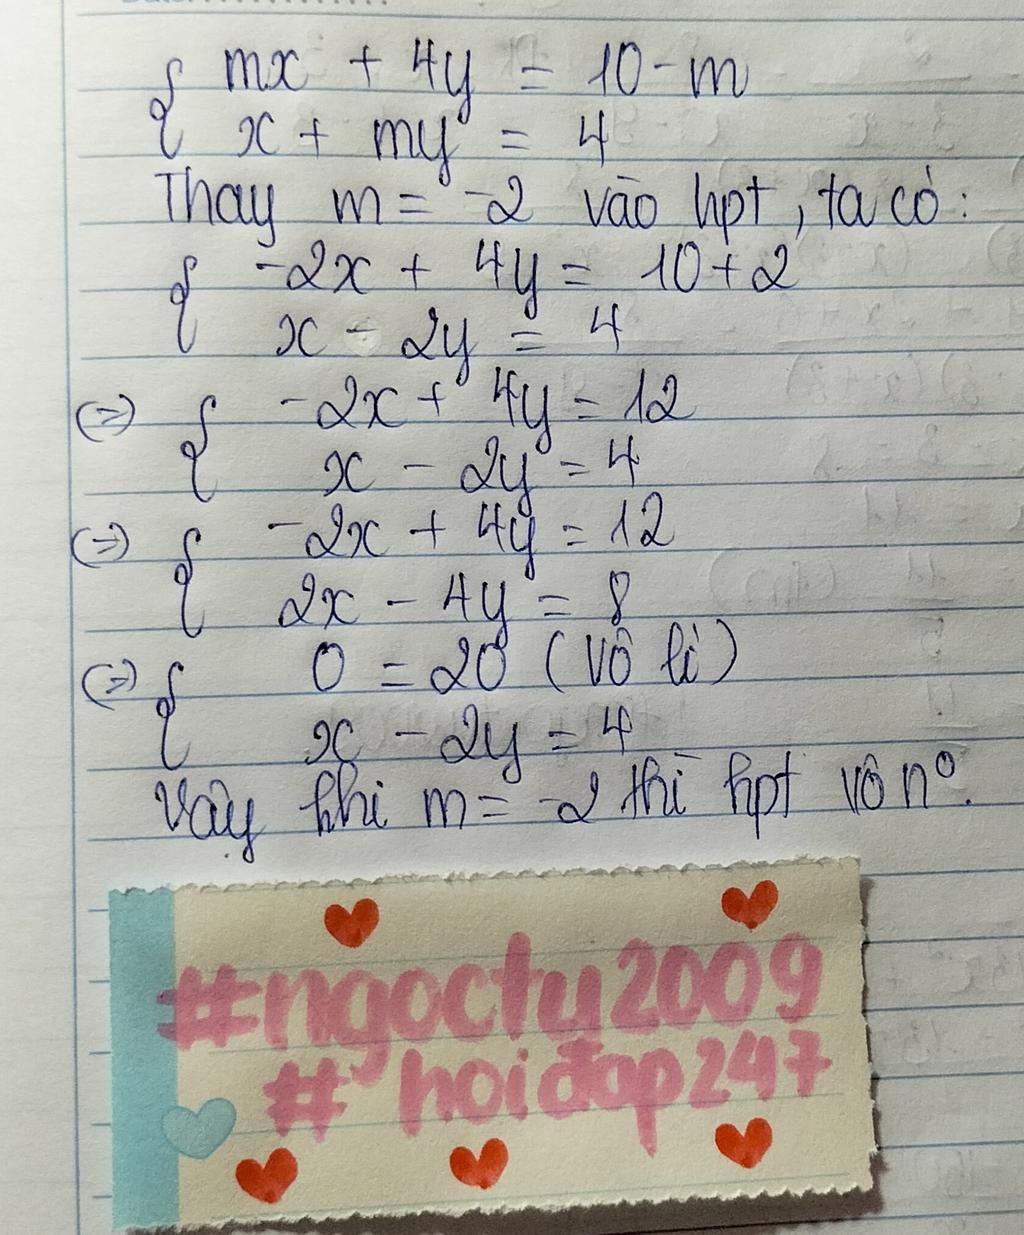 { mx + 4y = 10 - m
x + my = 4
Thay m = -2 vào hpt, ta có:
{ -2x + 4y = 10 + 2
x - 2y = 4
(=) { -2x + 4y = 12
x - 2y = 4
(=) { -2x + 4y = 12
2x - 4y = 8
(=) { 0 = 20 (vô lí)
x - 2y = 4
Vậy khi m = -2 thì hpt vô n°.
#ngoctu2009
#hoiđap247